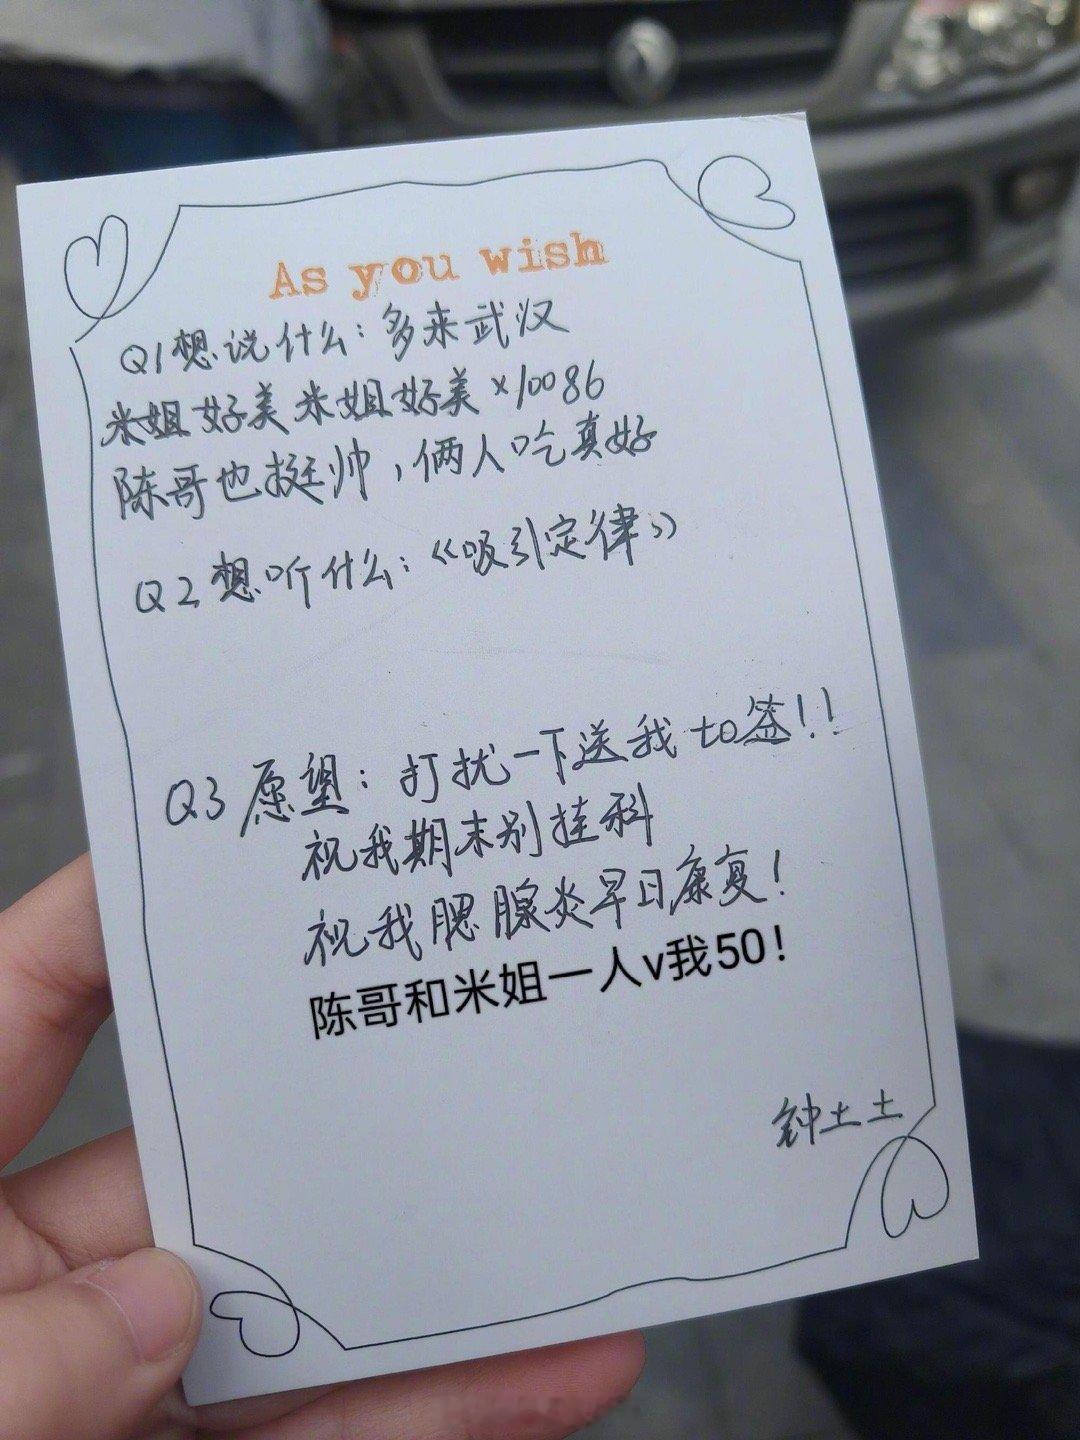 As you wish
Q1想说什么：多来武汉
米姐好美米姐好美×10086
陈哥也挺帅，俩人吃真好
Q2想听什么：《吸引定律》
Q3愿望：打扰一下送我to签！！
祝我期末别挂科
祝我腮腺炎早日康复！
陈哥和米姐一人v我50！
钟土土